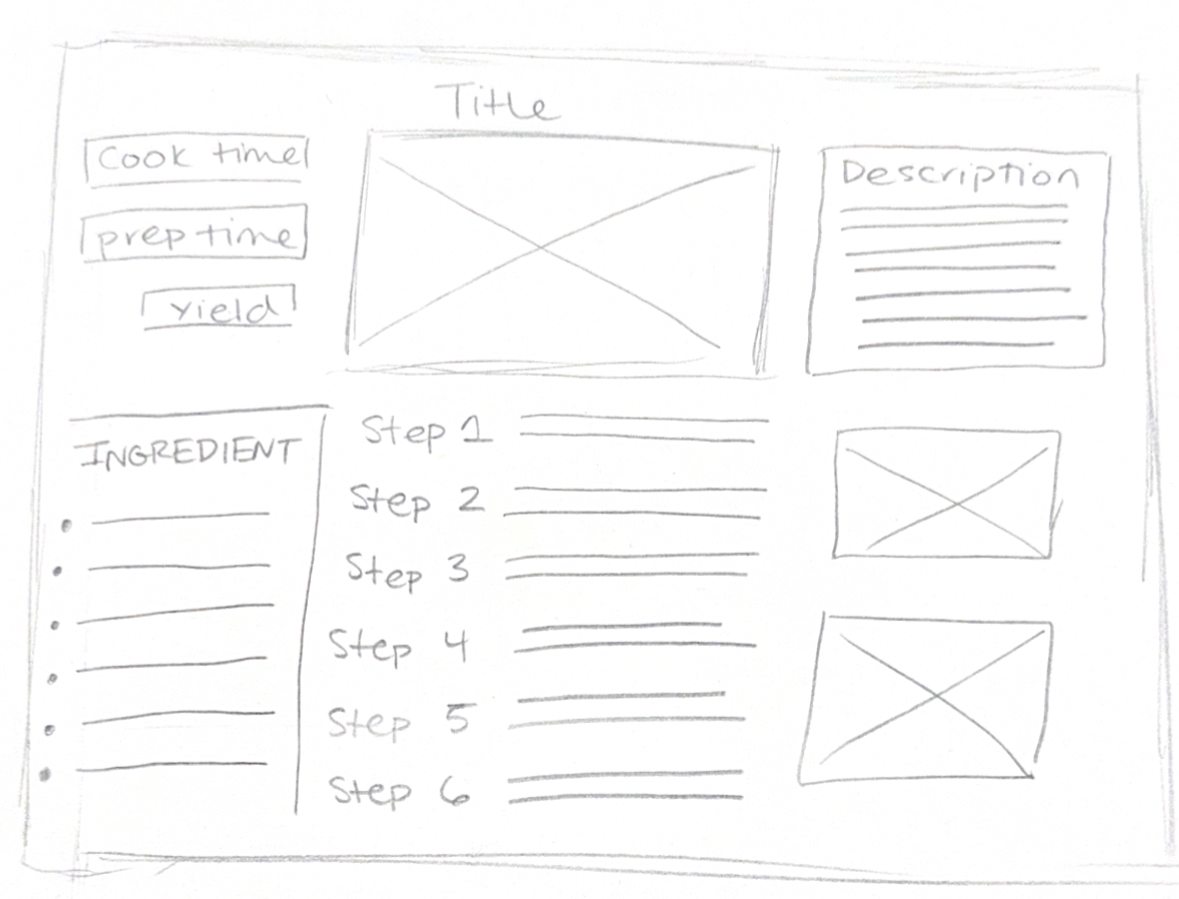 Title
Cook time
prep time
yield
Description
INGREDIENT
Step 1
Step 2
Step 3
Step 4
Step 5
Step 6